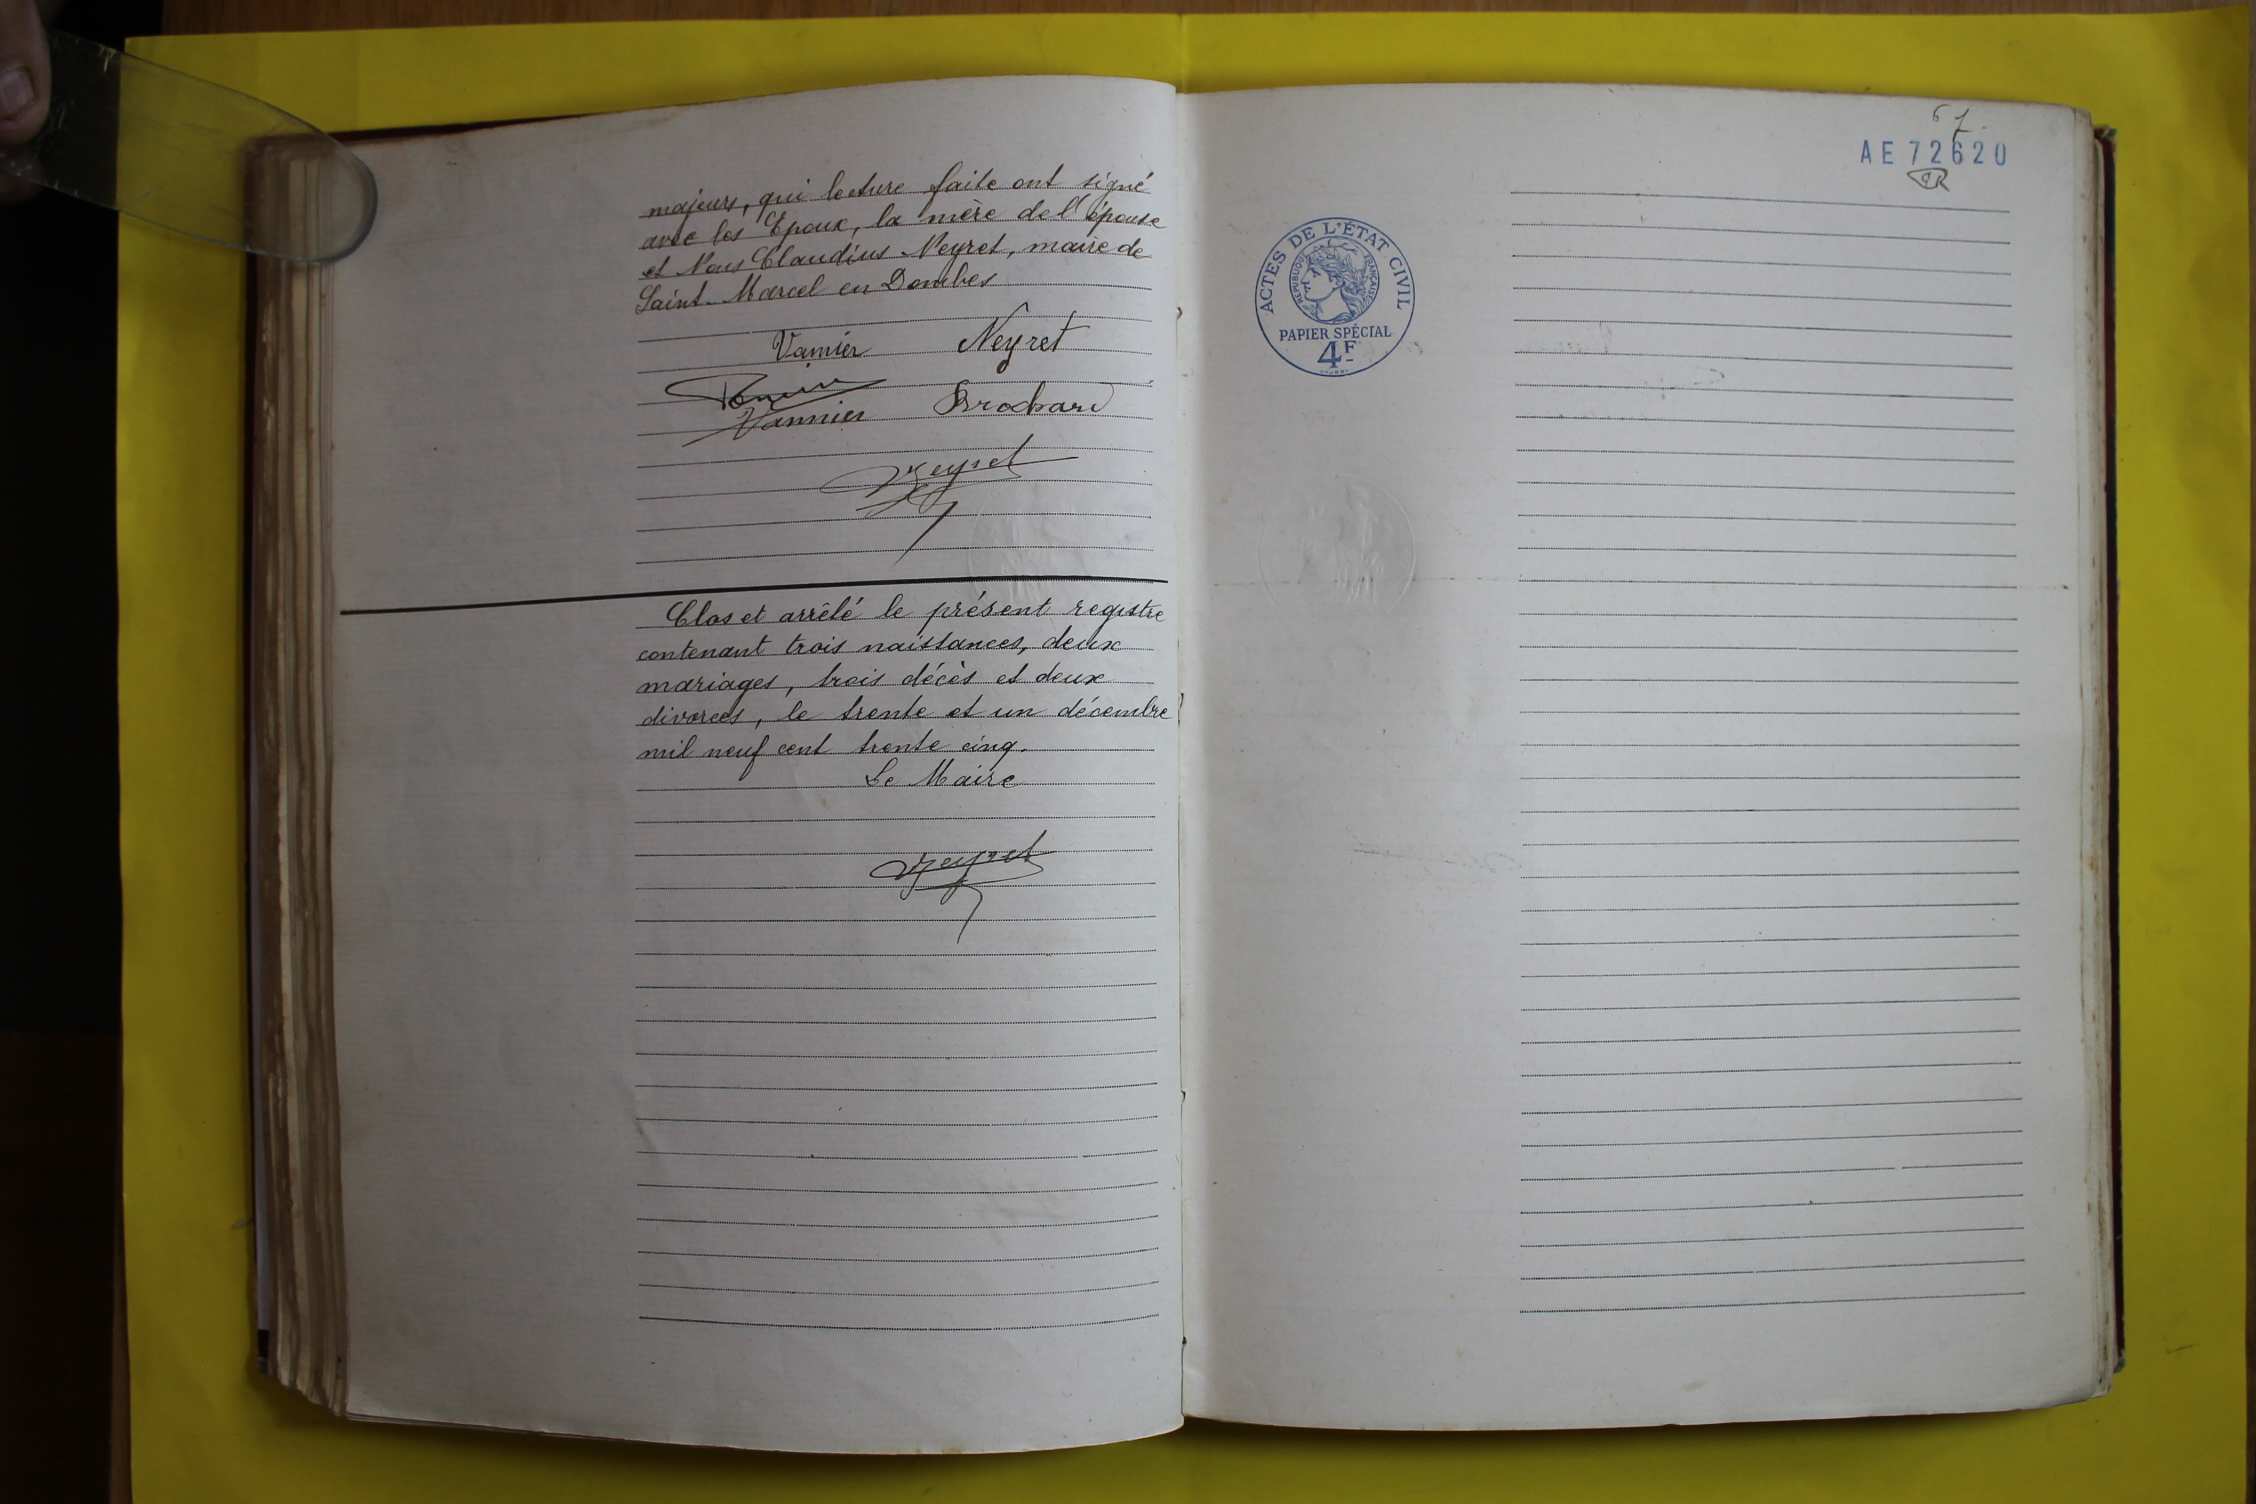 majeurs, qui lecture faite ont signé
avec les Epoux, la mère de l'épouse
et Nous Claudius Neyret, maire de
Saint-Marcel en Dombes
Vannier Neyret
Vannier Brochard
Neyret
Clos et arrêté le présent registre
contenant trois naissances, deux
mariages, trois décès et deux
divorces, le trente et un décembre
mil neuf cent trente cinq.
Le Maire
Neyret
67.
AE 72620
ACTES DE L'ÉTAT CIVIL
RÉPUBLIQUE FRANÇAISE
PAPIER SPÉCIAL
4F